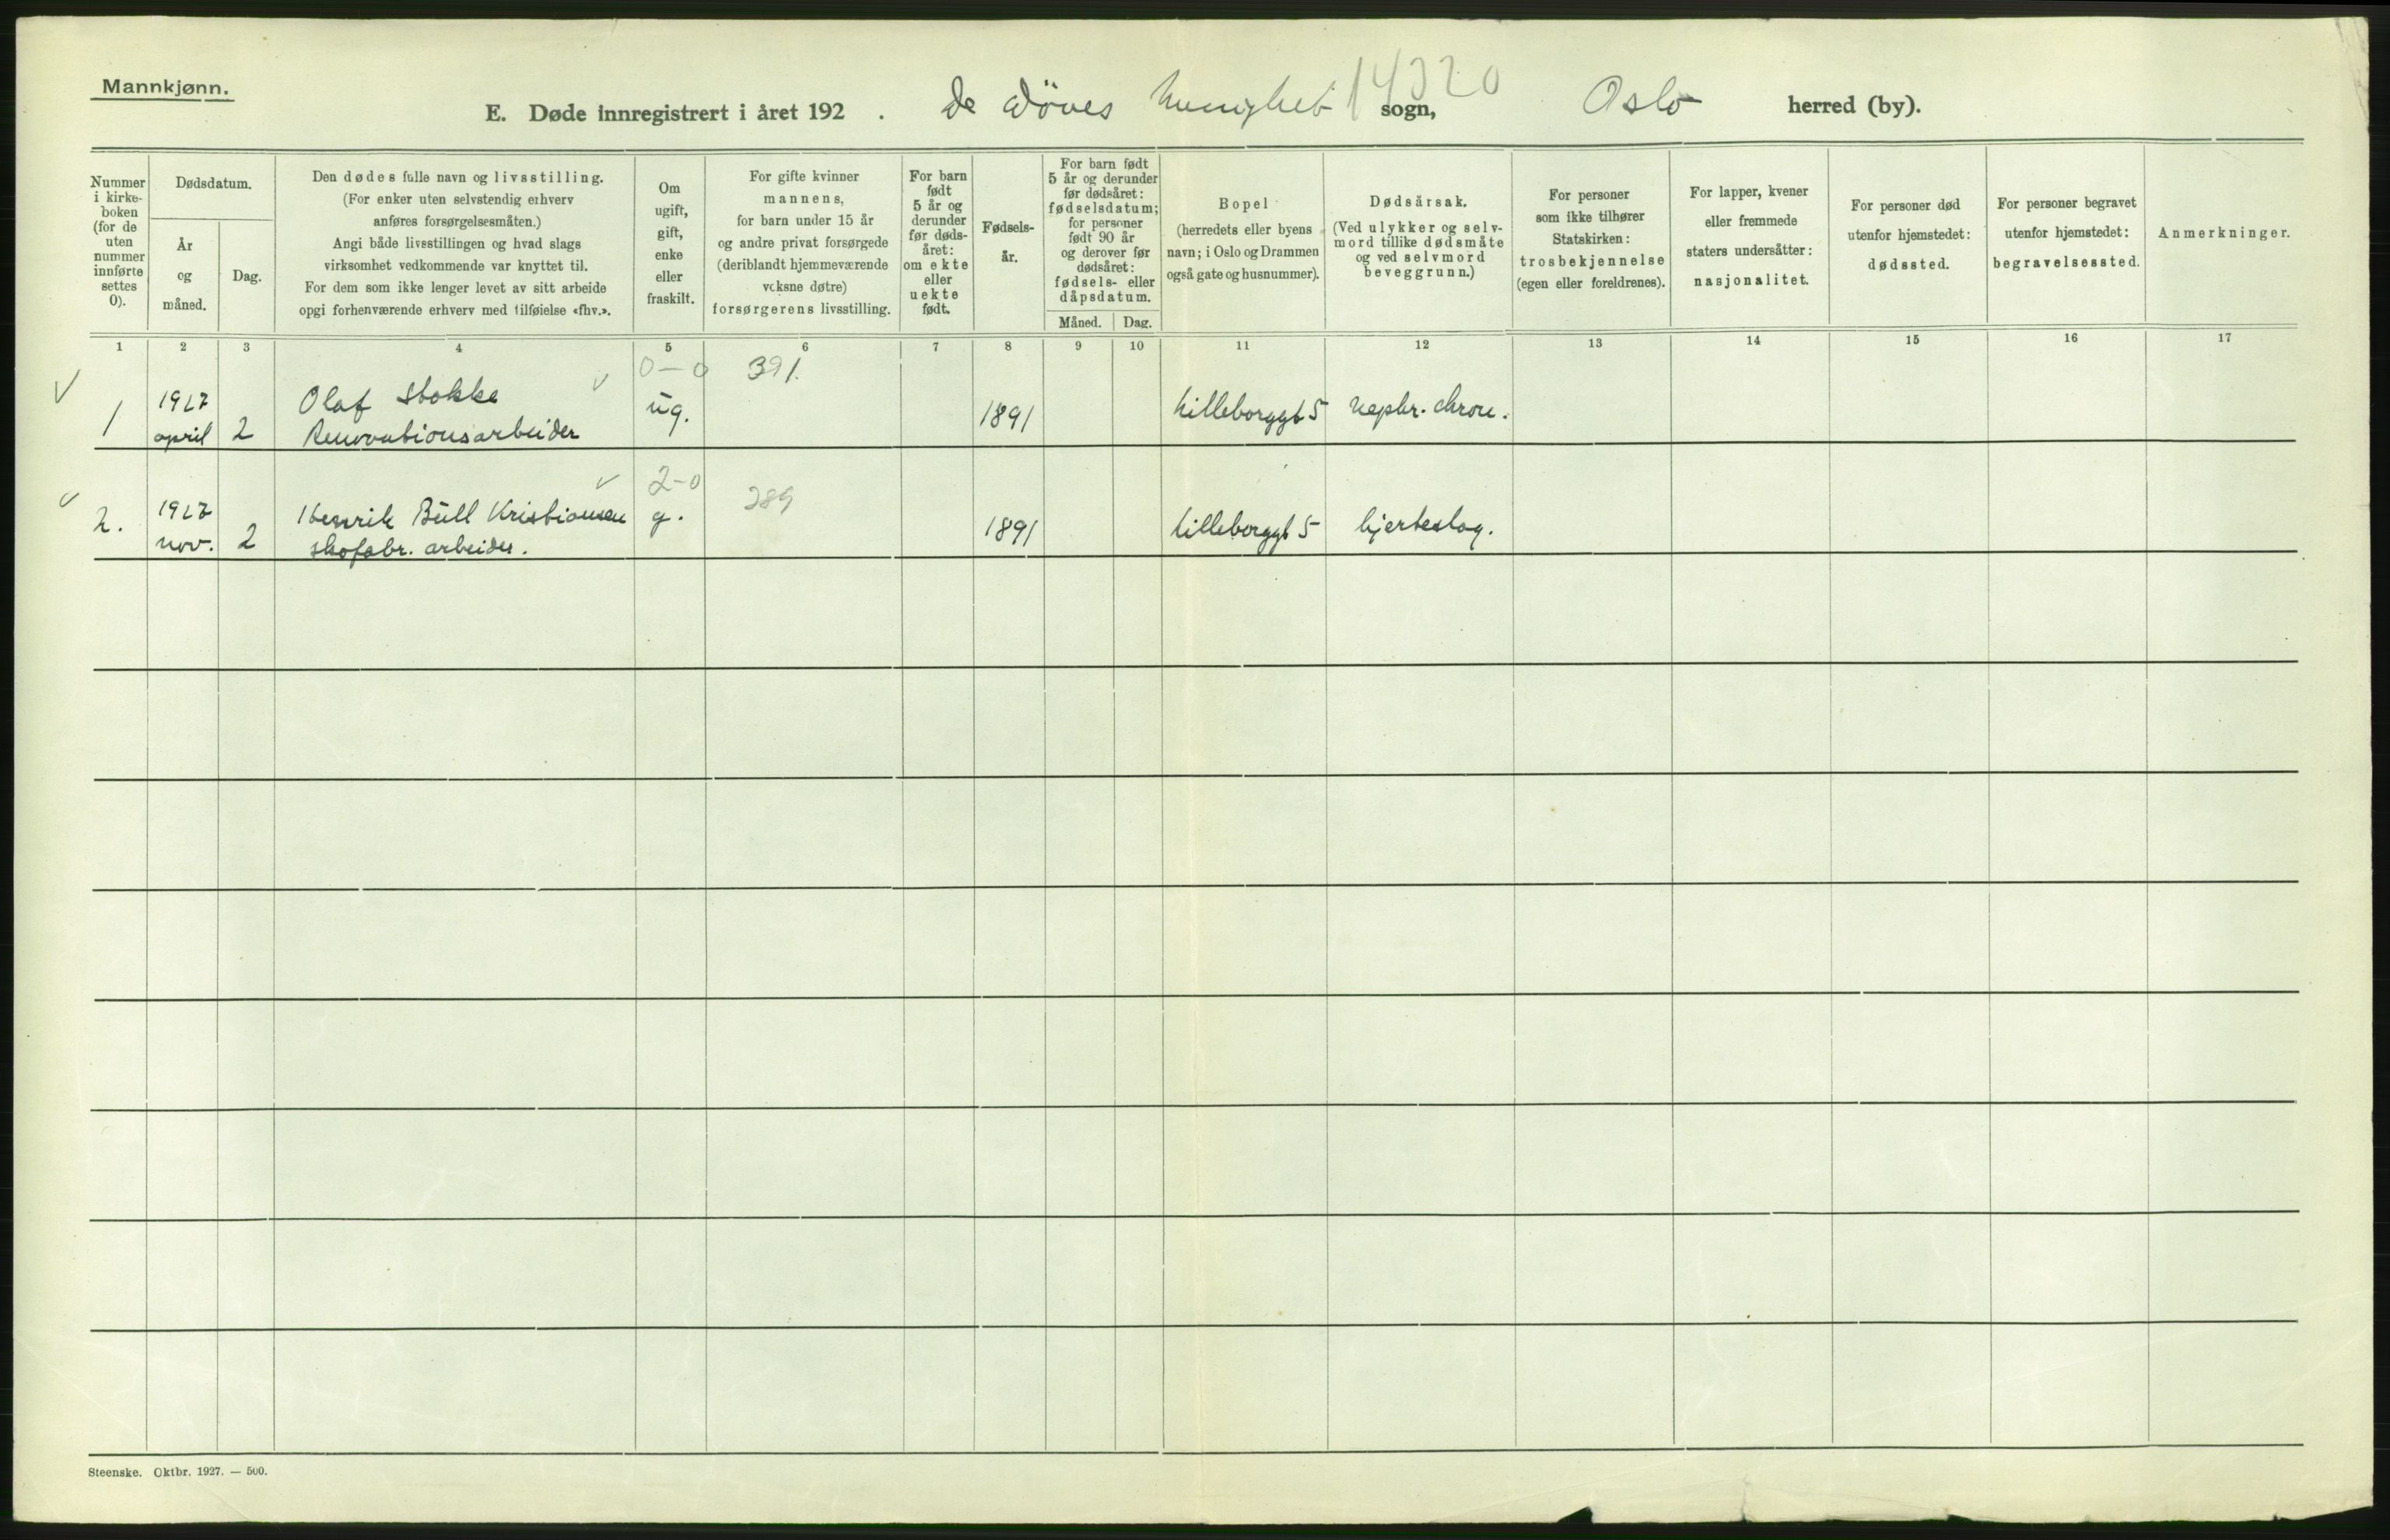 Mannkjønn.
E. Døde innregistrert i året 192 . De Døves menighet sogn, Oslo herred (by).
14320
Nummer i kirke-
boken
(for de
uten
nummer
innførte
settes
0).
Dødsdatum.
År
og
måned.
Dag.
Den dødes fulle navn og livsstilling.
(For enker uten selvstendig erhverv
anføres forsørgelsesmåten.)
Angi både livsstillingen og hvad slags
virksomhet vedkommende var knyttet til.
For dem som ikke lenger levet av sitt arbeide
opgi forhenværende erhverv med tilføielse «fhv.».
Om
ugift,
gift,
enke
eller
fraskilt.
For gifte kvinner
mannens,
for barn under 15 år
og andre privat forsørgede
(deriblandt hjemmeværende
voksne døtre)
forsørgerens livsstilling.
For barn
født
5 år og
derunder
før døds-
året:
om ekte
eller
uekte
født.
Fødsels-
år.
For barn født
5 år og derunder
før dødsåret:
fødselsdatum;
for personer
født 90 år
og derover før
dødsåret:
fødsels- eller
dåpsdatum.
Måned. Dag.
Bopel
(herredets eller byens
navn; i Oslo og Drammen
også gate og husnummer).
Dødsårsak.
(Ved ulykker og selv-
mord tillike dødsmåte
og ved selvmord
beveggrunn.)
For personer
som ikke tilhører
Statskirken:
trosbekjennelse
(egen eller foreldrenes).
For lapper, kvener
eller fremmede
staters undersåtter:
nasjonalitet.
For personer død
utenfor hjemstedet:
dødssted.
For personer begravet
utenfor hjemstedet:
begravelsessted.
Anmerkninger.
1 2 3 4 5 6 7 8 9 10 11 12 13 14 15 16 17
0-0 391.
1 1927 april 2 Olaf Stokke ug. 1891 Lilleborggt 5 nephr. chron.
Renovationsarbeider
2-0 289
2. 1927 nov. 2 Henrik Bull Kristiansen g. 1891 Lilleborggt 5 hjerteslag.
skofabr. arbeider.
Steenske. Oktbr. 1927. — 500.